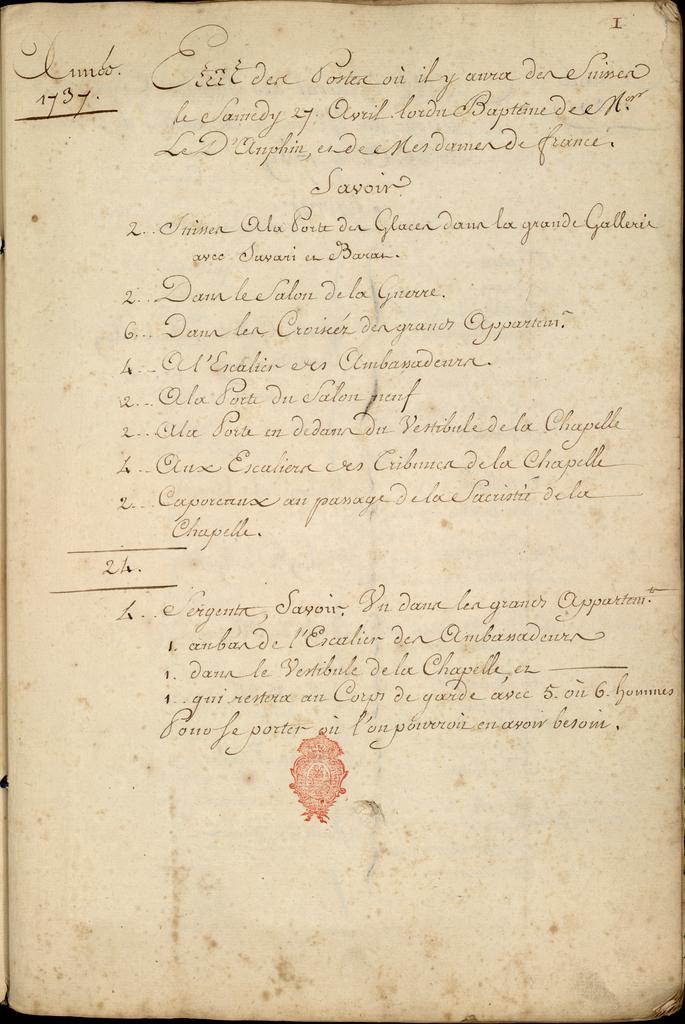 1
Année.
1737.
Etat des Postes où il y aura des Suisses
le Samedy 27. Avril lors du Baptême de Mgr
Le D'Auphin, et de Mesdames de france.
Savoir
2.. Suisses A la Porte des Glaces dans la grande Gallerie
avec Savari et Baran.
2.. Dans le Salon de la Guerre.
6.. Dans les Croisées des grands Appartemts
4.. A l'Escalier des Ambassadeurs.
2.. A la Porte du Salon neuf
2.. A la Porte en dedans du Vestibule de la Chapelle
4.. Aux Escaliers des Tribunes de la Chapelle
2.. Caporeaux au passage de la Sacristie de la
Chapelle.
24.
4.. Sergents, Savoir. Un dans les grands Appartemts
1. au bas de l'Escalier des Ambassadeurs
1. dans le Vestibule de la Chapelle, et
1.. qui restera au Corps de garde avec 5. où 6. hommes
Pour se porter où l'on pourroit en avoir besoin.